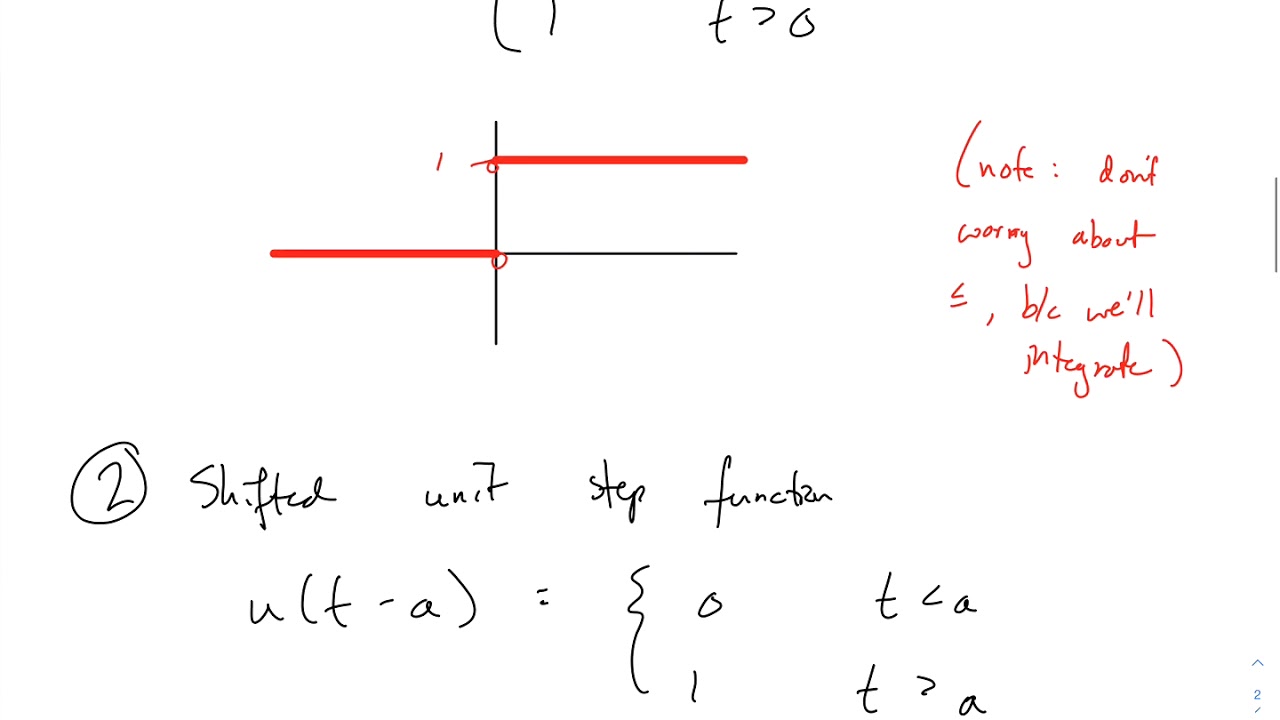 ( 1 t > 0
1
(note: don't
worry about
≤, b/c we'll
integrate)
2 Shifted unit step function
u(t - a) = { 0 t < a
1 t > a
2